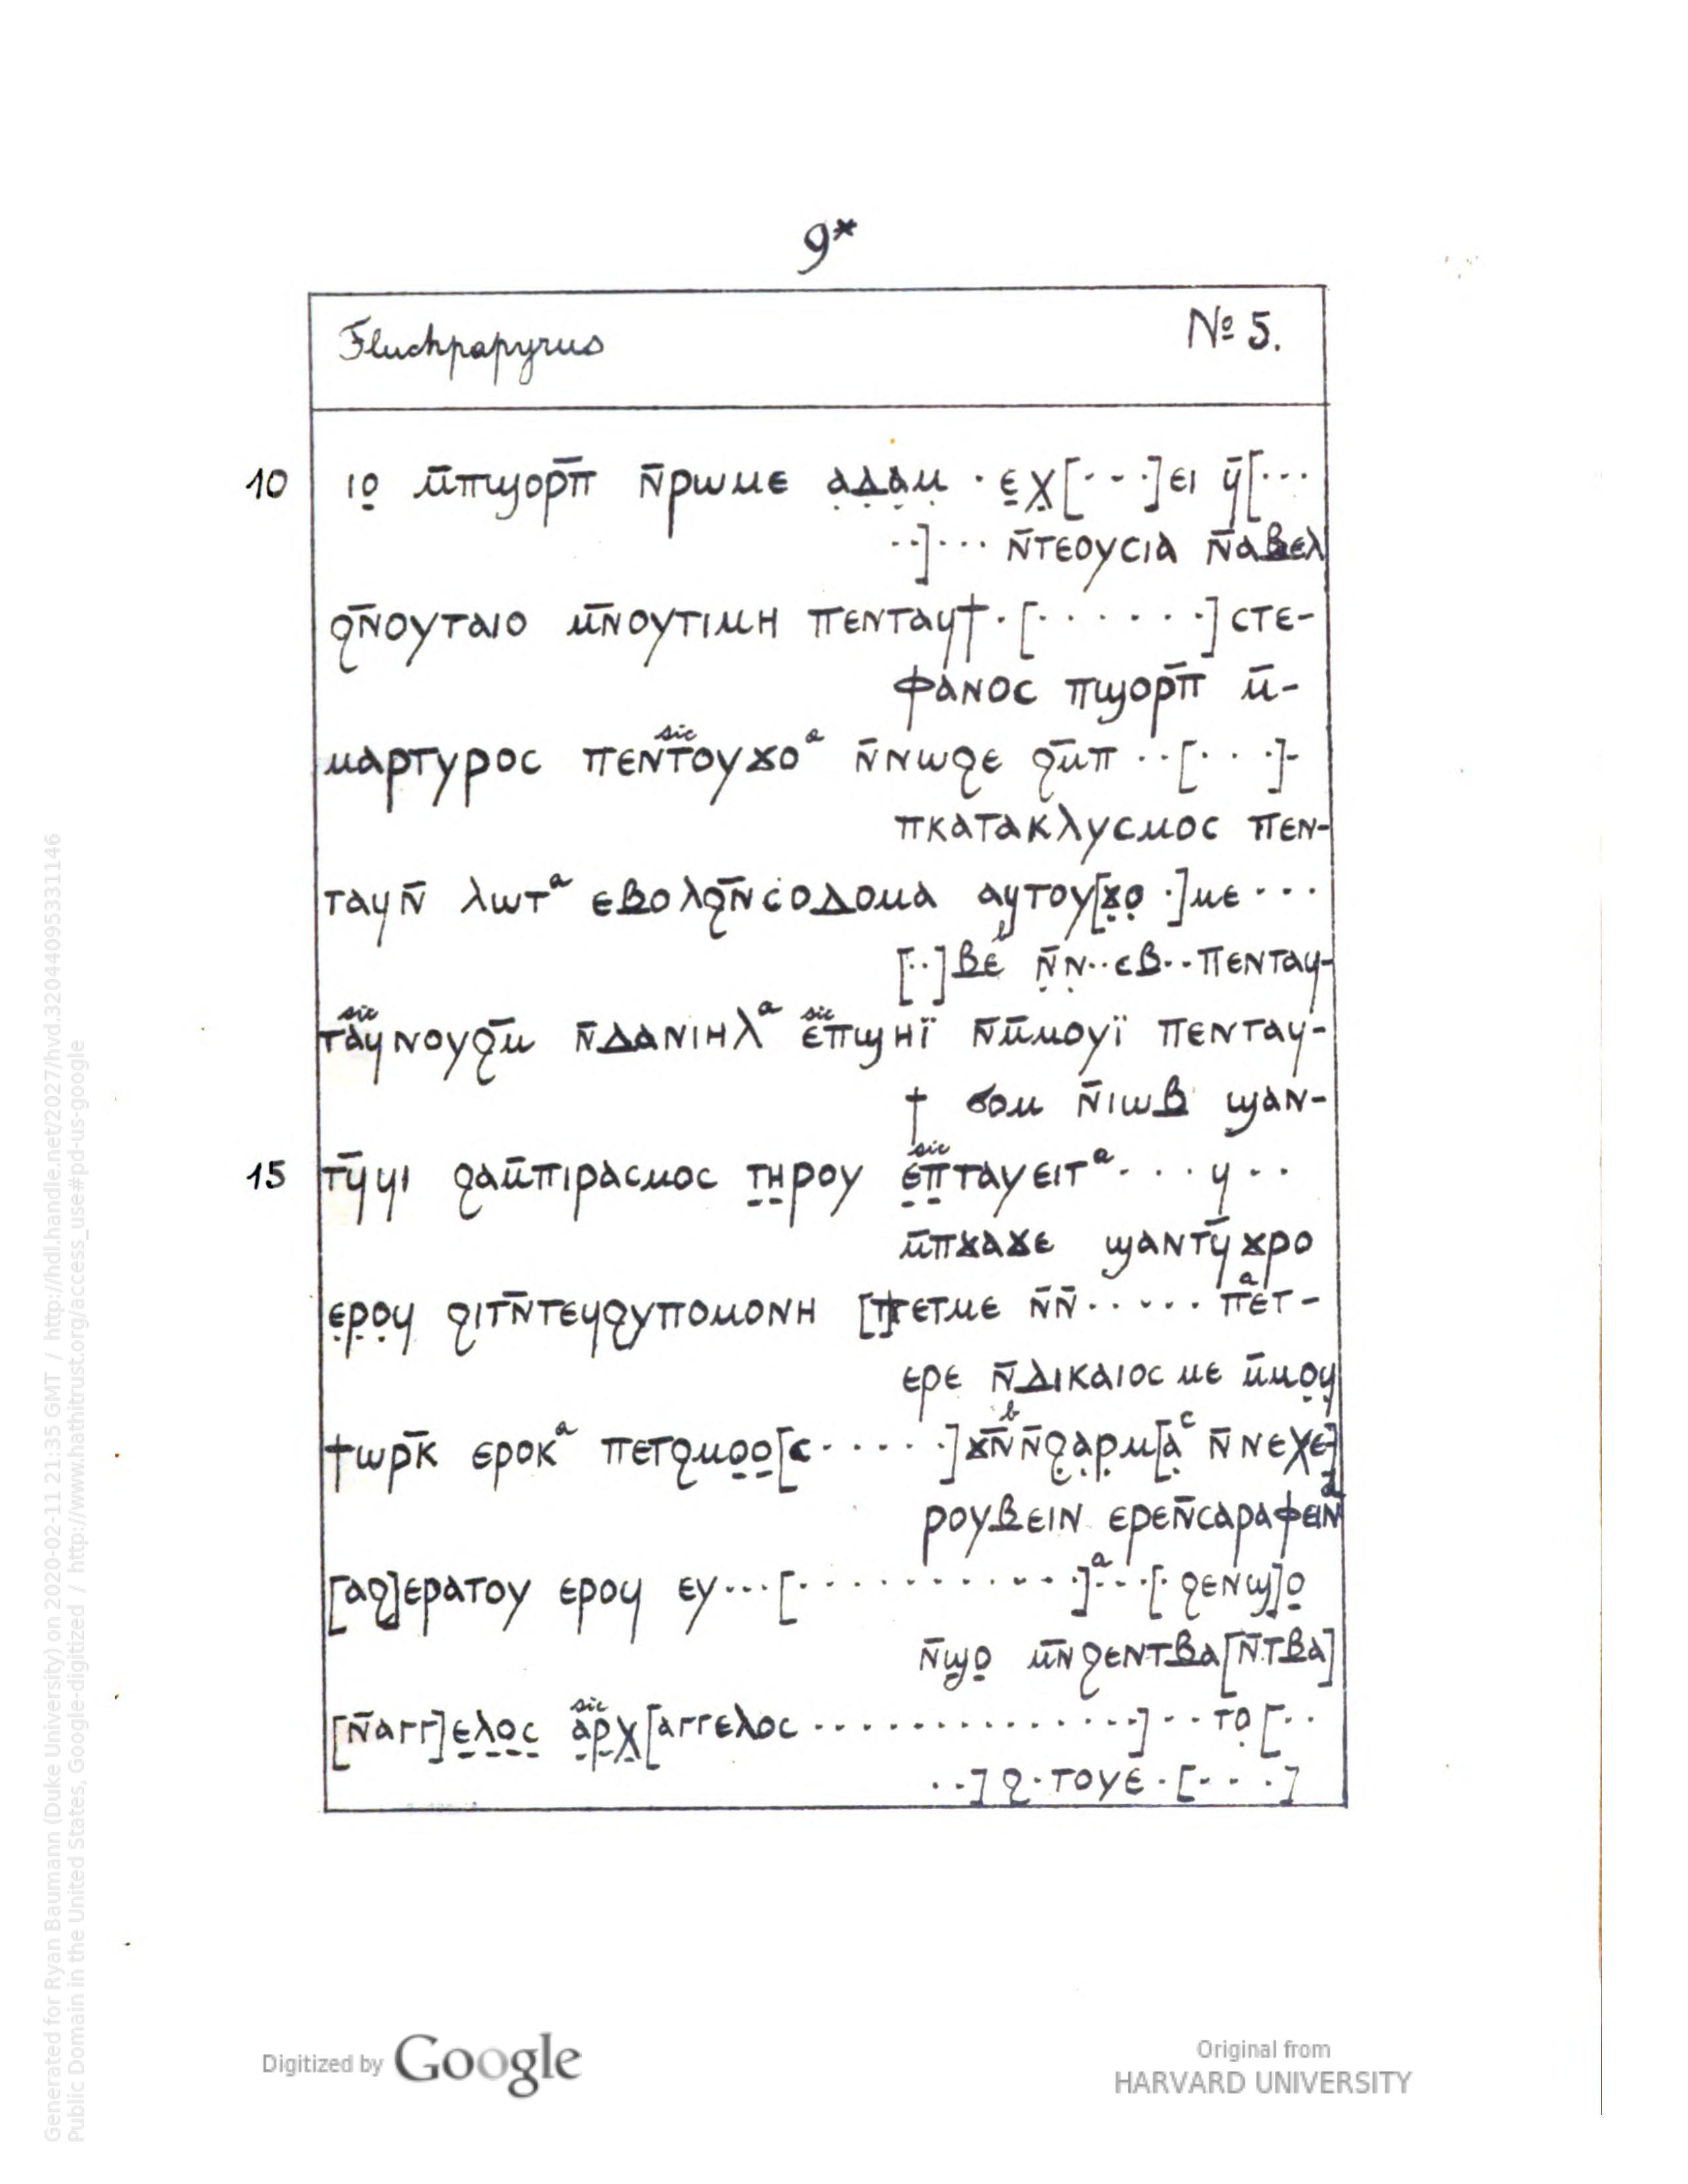 9*
Fluchpapyrus № 5.
10 ⲓⲟ̣ ⲙ̄ⲡϣⲟⲣⲡ̄ ⲛ̄ⲣⲱⲙⲉ ⲁ̣ⲇ̣ⲁ̣ⲙ̣ · ⲉ̣ⲭ̣[· · ·]ⲉⲓ ϥ̄[· · ·
· ·]· · · ⲛ̄ⲧⲉⲟⲩⲥⲓⲁ ⲛ̄ⲁⲃⲉⲗ
ϩⲛ̄ⲟⲩⲧⲁⲓⲟ ⲙⲛ̄ⲟⲩⲧⲓⲙⲏ ⲡⲉⲛⲧⲁϥϯ · [· · · · · · ·] ⲥⲧⲉ-
ⲫⲁⲛⲟⲥ ⲡϣⲟⲣⲡ̄ ⲙ̄-
ⲙⲁⲣⲧⲩⲣⲟⲥ ⲡⲉⲛⲧⲟⲩϫⲟ sic a ⲛ̄ⲛⲱϩⲉ ϩⲙ̄ⲡ · · [· · ·]-
ⲡⲕⲁⲧⲁⲕⲗⲩⲥⲙⲟⲥ ⲡⲉⲛ-
ⲧⲁϥⲛ̄ ⲗⲱⲧ a ⲉⲃⲟⲗϩⲛ̄ⲥⲟⲇⲟⲙⲁ ⲁϥⲧⲟⲩ[ϫ̣ⲟ̣ ·]ⲙⲉ · · ·
[· ·]ⲃⲉ b ⲛ̣̄ⲛ̣ · · ⲉⲃ · · ⲡⲉⲛⲧⲁϥ-
ⲧⲁϥⲛⲟⲩϩⲙ̄ sic ⲛ̄ⲇⲁⲛⲓⲏⲗ a ⲉⲡϣⲏⲓ̈ sic ⲛ̄ⲙ̄ⲙⲟⲩⲓ̈ ⲡⲉⲛⲧⲁϥ-
ϯ ϭⲟⲙ ⲛ̄ⲓⲱⲃ ϣⲁⲛ-
15 ⲧϥ̄ϥⲓ ϩⲁⲙ̄ⲡⲓⲣⲁⲥⲙⲟⲥ ⲧ̣ⲏ̣ⲣⲟⲩ ⲉ̣ⲡ̣ⲧⲁⲩⲉⲓⲧ sic a · · · ϥ · ·
ⲙ̄ⲡϫⲁϫⲉ ϣⲁⲛⲧϥ̄ϫⲣⲟ
ⲉ̣ⲣ̣ⲟ̣ϥ ϩⲓⲧⲛ̄ⲧⲉϥϩⲩⲡⲟⲙⲟⲛⲏ [ⲡ]ⲉⲧⲙⲉ ⲛ̄ⲛ̄ · · · · · ⲡⲉⲧ a -
ⲉⲣⲉ ⲛ̄ⲇⲓⲕⲁⲓⲟⲥ ⲙⲉ ⲙ̄ⲙⲟ̣ϥ̣
ϯⲱⲣⲕ̄ ⲉⲣⲟⲕ a ⲡⲉⲧϩⲙⲟ̣ⲟ̣[ⲥ · · · · ·]ϫⲛ̄ b ⲛ̄ϩ̣ⲁ̣ⲣ̣ⲙ[ⲁ c ⲛ̄ⲛⲉⲭⲉ]
ⲣⲟⲩⲃⲉⲓⲛ ⲉⲣⲉⲛ̄ⲥⲁⲣⲁⲫⲉⲓⲛ d
[ⲁϩ]ⲉⲣⲁⲧⲟⲩ ⲉⲣⲟϥ ⲉⲩ · · · [· · · · · · · · · · · ·] a · · · [· ϩⲉⲛϣ]ⲟ̣
ⲛ̄ϣⲟ̣ ⲙⲛ̄ϩⲉⲛⲧⲃⲁ[ⲛ̄ⲧⲃⲁ]
[ⲛ̄ⲁⲅⲅ]ⲉ̣ⲗ̣ⲟ̣ⲥ̣ ⲁ̣ⲣ̣ⲭ̣ sic [ⲁⲅⲅⲉⲗⲟⲥ · · · · · · · · · · · · · ·] · · ⲧⲟ̣ [· ·
· ·] ϩ · ⲧⲟⲩⲉ · [· · · ·]
Generated for Ryan Baumann (Duke University) on 2020-02-11 21:35 GMT / http://hdl.handle.net/2027/hvd.32044095331146
Public Domain in the United States, Google-digitized / http://www.hathitrust.org/access_use#pd-us-google
Digitized by Google
Original from
HARVARD UNIVERSITY